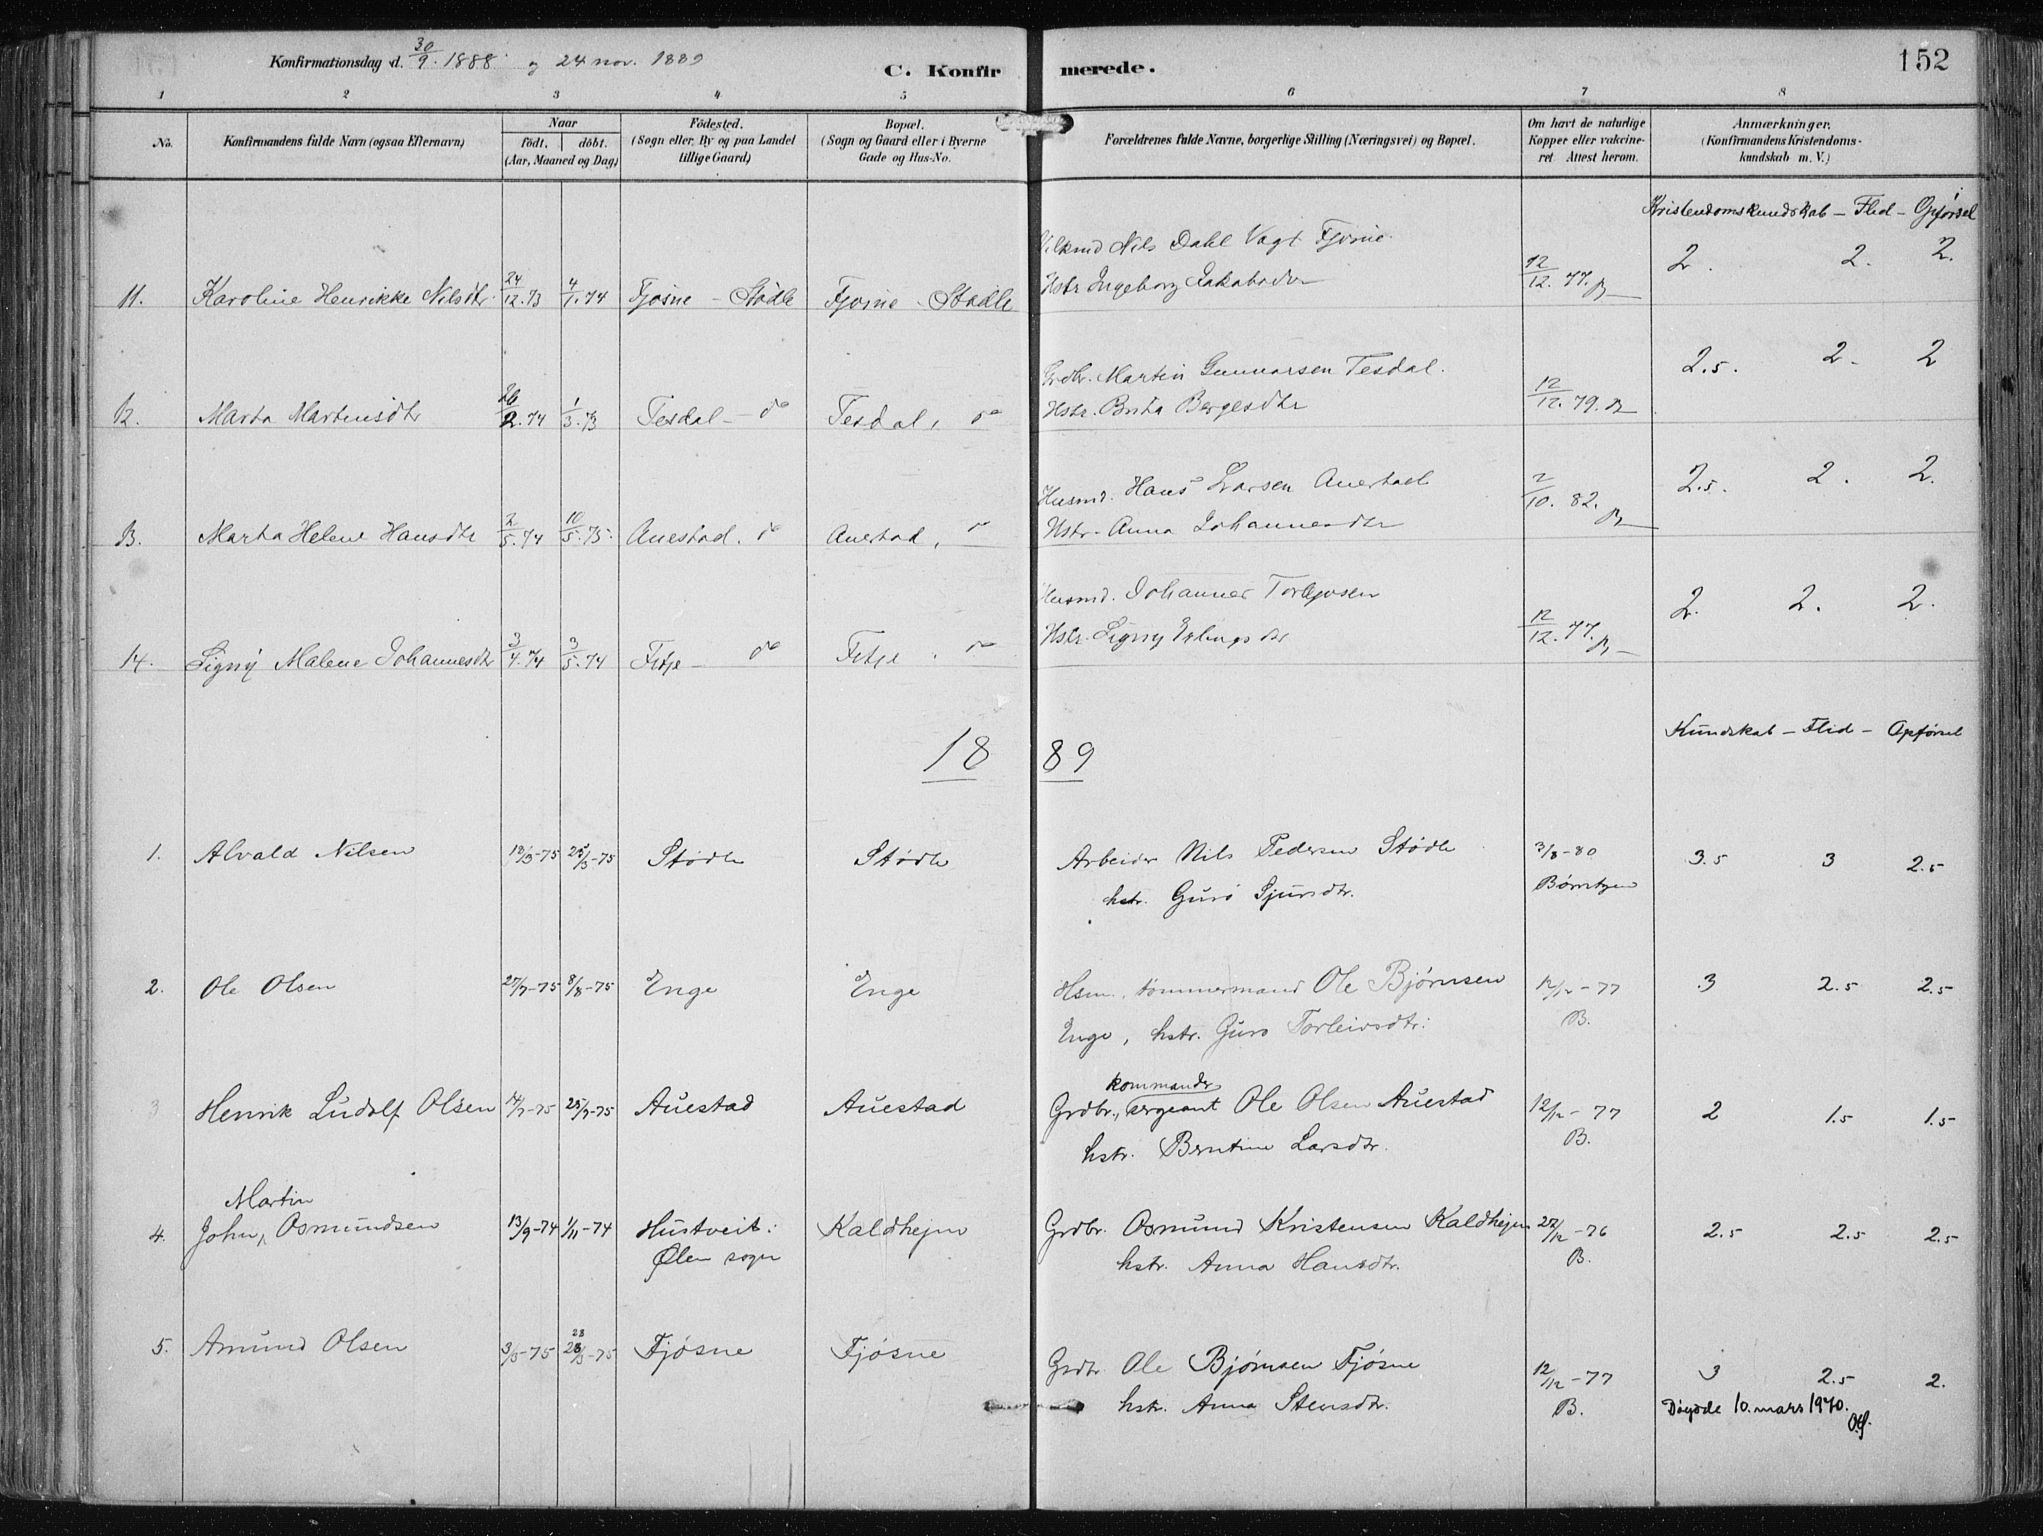 Konfirmationsdag d. 30/9. 1888. og 24 nov. 1889
C. Konfirmerede.
152
1 2 3 4 5 6 7 8
No.
Konfirmandens fulde Navn (ogsaa Efternavn)
Naar
födt. döbt.
(Aar, Maaned og Dag)
Födested.
(Sogn eller By og paa Landet
tillige Gaard)
Bopæl.
(Sogn og Gaard eller i Byerne
Gade og Hus-No.
Forældrenes fulde Navne, borgerlige Stilling (Næringsvei) og Bopæl.
Om havt de naturlige
Kopper eller vakcine-
ret Attest herom.
Anmærkninger.
(Konfirmandens Kristendoms-
kundskab m. V.)
Kristendomskundskab – Flid – Opførsel
11. Karoline Henrikke Nilsdtr. 24/12.73 4/1.74 Fjosne – Stødle Fjosne . Stødle
Nils Dahl Vagt Fjosne
Hstr Ingeborg Jakobsdtr
12/12.77. 2. 2. 2.
12. Marta Martinsdtr 26/2.74 1/3.73 Tesdal – do Tesdal, do
Grdbr. Martin Gunnarsen Tesdal.
Hstr. Brita Bergesdtr
12/12.79. B 2.5. 2. 2
13. Marta Helene Hansdtr 2/5.74 10/5.75. Auestad. do Auestad, do
Husmd. Hans Larsen Auestad
Hstr. Anna Johannesdtr
2/10.82. 2.5. 2. 2.
14. Signy Malene Johannesdtr 3/4.74 3/5.74 Fitje – do Fitje . do
Husmd. Johannes Torbjosen
Hstr. Signy Erlingsdtr
12/12.77. 2. 2. 2.
1889
Kundskab – Flid – Opførsel
1. Alvald Nilsen 18/3-75 25/3-75 Stødle Stødle
Arbeider Nils Pedersen Stødle
hstr. Guro Sjursdtr.
3/8-80
3.5 3 2.5
2. Ole Olsen 27/7-75 8/8-75 Enge Enge
Hsm., tømmermand Ole Bjørnsen
Enge, hstr. Guro Torleivsdtr:
12/12-77
B.
3 2.5 2.5
3 Henrik Ludolf Olsen 14/7-75 25/7-75 Auestad Auestad
kommander
Grdbr., sergeant Ole Olsen Auestad
hstr. Berntine Larsdtr.
12/12-77
B.
2 1.5 1.5
Martin
4. John, Osmundsen 13/9-74 1/11-74 Hustveit: Kaldhejm
Ølen sogn
Grdbr. Osmund Kristensen Kaldhejm
hstr. Anna Hansdtr.
27/12-76
B.
2.5 2.5 2.5
5. Amund Olsen 3/5-75 28/5-75 Fjøsne Fjøsne
28
Grdbr Ole Bjørnsen Fjøsne
hstr. Anna Stensdtr.
12/12-77
B.
3 2.5 2.
Døyde 10. mars 1970.